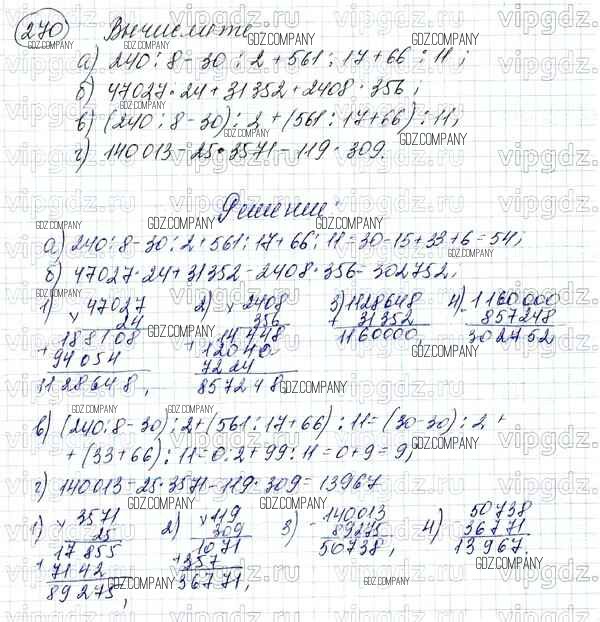 270 Вычислите
а) 240 : 8 - 30 : 2 + 561 : 17 + 66 : 11;
б) 47027 · 24 + 31352 - 2408 · 356;
в) (240 : 8 - 30) : 2 + (561 : 17 + 66) : 11;
г) 140013 - 25 · 3571 - 119 · 309.
Решение:
а) 240 : 8 - 30 : 2 + 561 : 17 + 66 : 11 = 30 - 15 + 33 + 6 = 54;
б) 47027 · 24 + 31352 - 2408 · 356 = 302752;
1) × 47027 2) × 2408 3) + 1128648 4) - 1160000
24 356 31352 857248
188108 14448 1160000, 302752
+ 94054 + 12040
1128648, 7224
857248
в) (240 : 8 - 30) : 2 + (561 : 17 + 66) : 11 = (30 - 30) : 2 +
+ (33 + 66) : 11 = 0 : 2 + 99 : 11 = 0 + 9 = 9;
г) 140013 - 25 · 3571 - 119 · 309 = 13967
1) × 3571 2) × 119 3) - 140013 4) - 50738
25 309 89275 36771
17855 1071 50738, 13967.
+ 7142 + 357
89275, 36771,
GDZ.COMPANY
vipgdz.ru